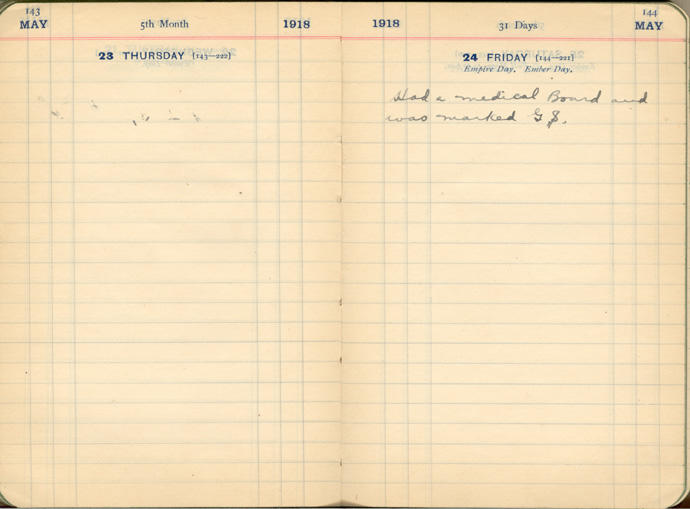 143
MAY
5th Month
1918
23 THURSDAY [143—222]
1918
31 Days
144
MAY
24 FRIDAY [144—221]
Empire Day. Ember Day.
Had a medical Board and
was marked G.S.